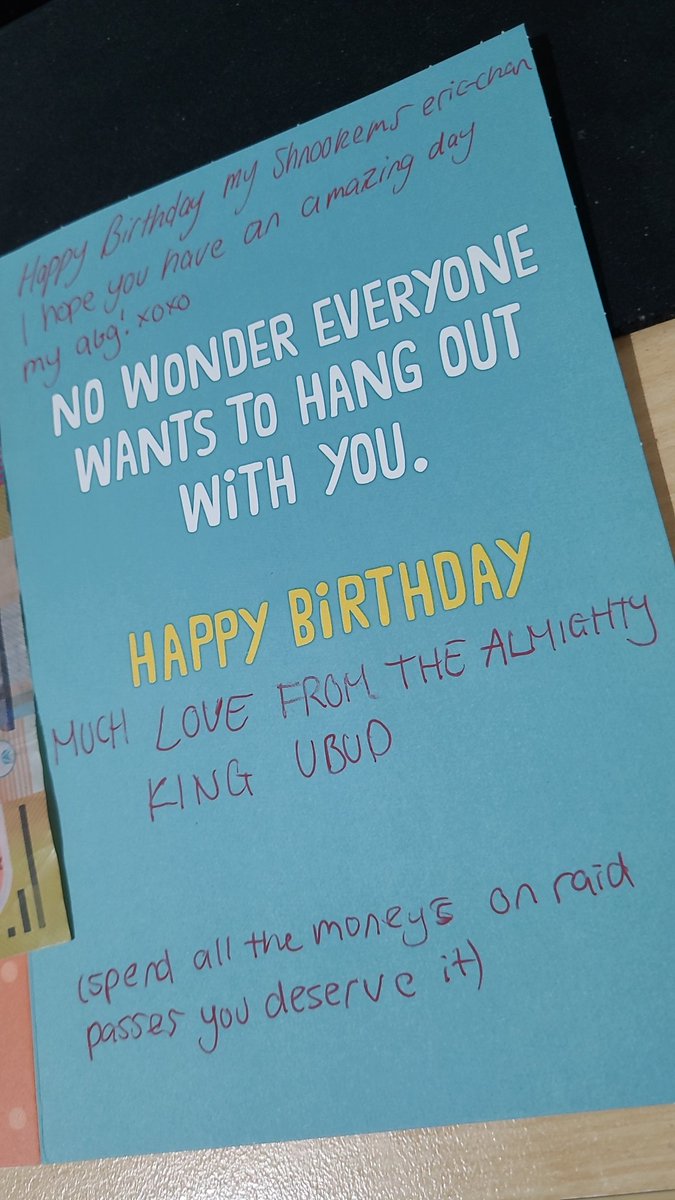 Happy Birthday my Shnookems eric-chan
I hope you have an amazing day
my abg! xoxo
NO WONDER EVERYONE
WANTS TO HANG OUT
WiTH YOU.
HAPPY BiRTHDAY
MUCH LOVE FROM THE ALMIGHTY
KING UBUD
(spend all the moneys on raid
passes you deserve it)